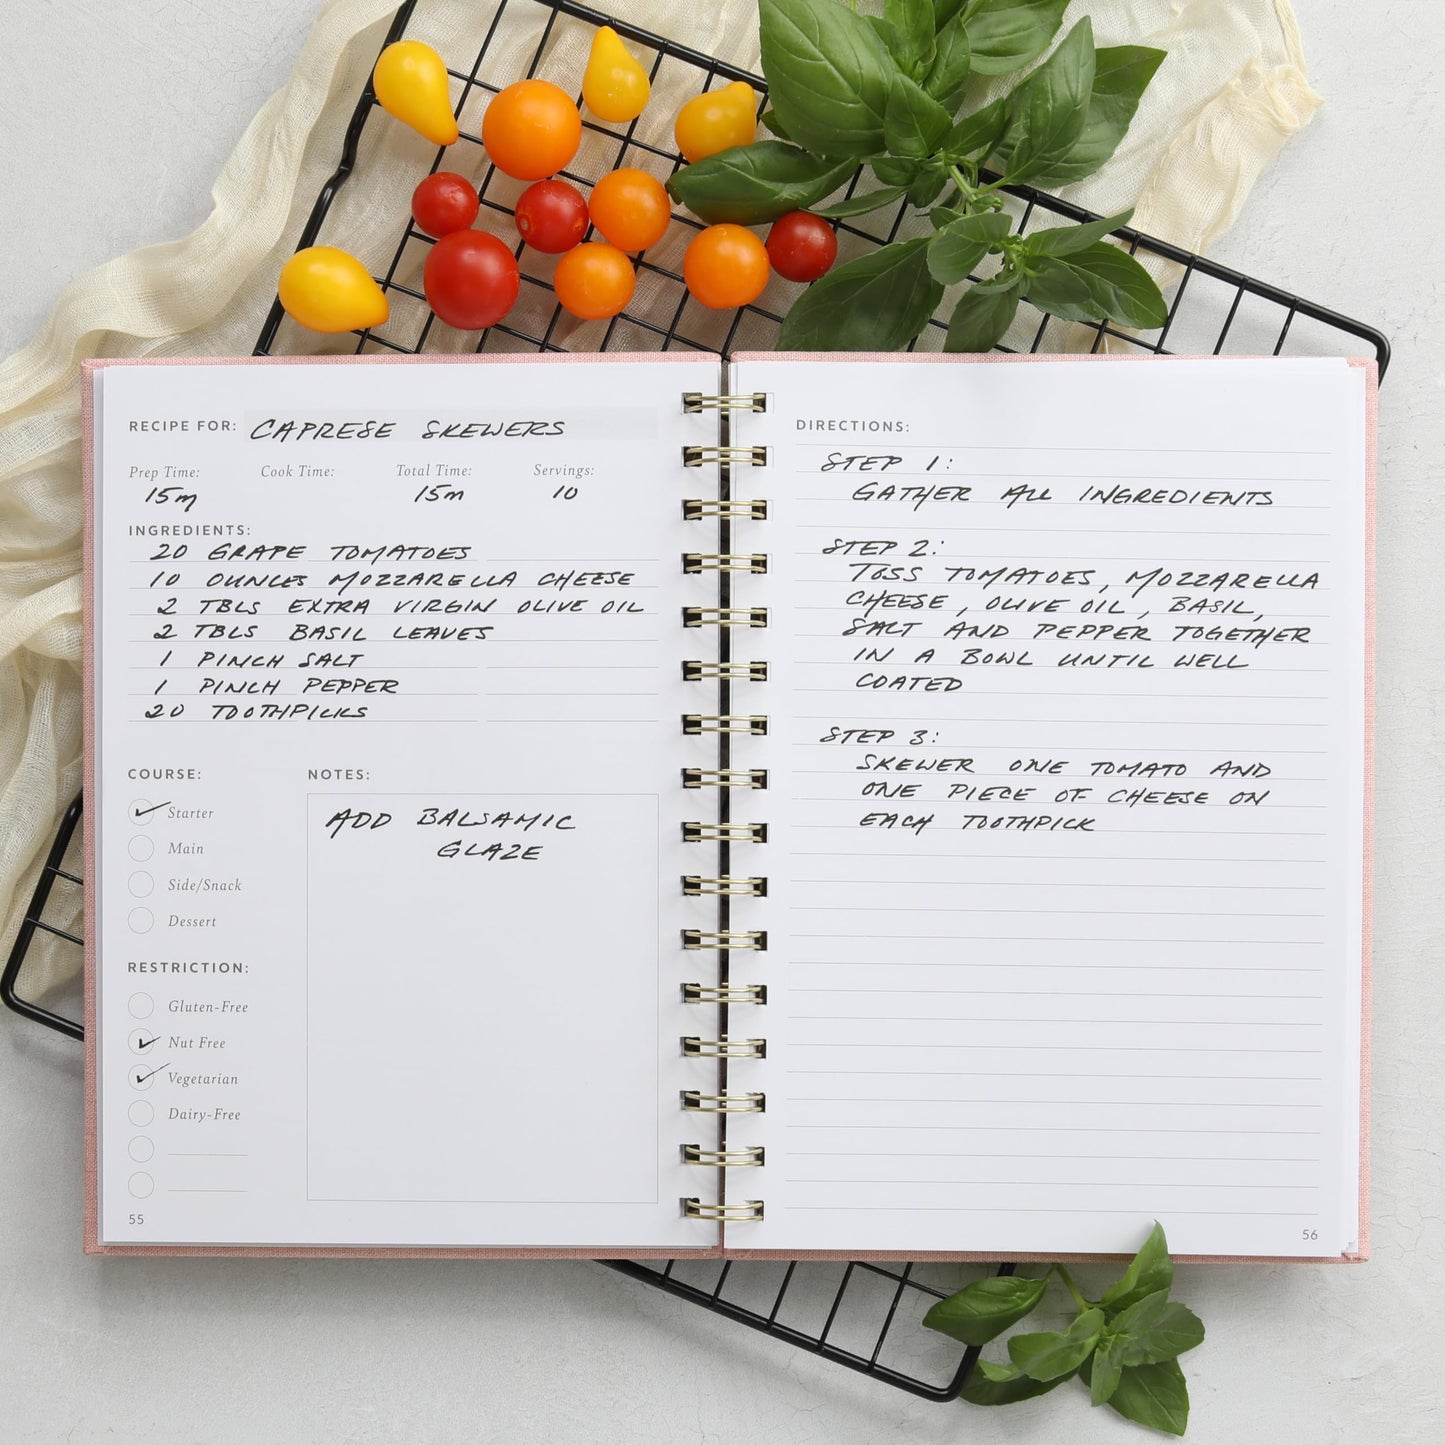 RECIPE FOR: CAPRESE SKEWERS
Prep Time: Cook Time: Total Time: Servings:
15m 15m 10
INGREDIENTS:
20 GRAPE TOMATOES
10 OUNCES MOZZARELLA CHEESE
2 TBLS EXTRA VIRGIN OLIVE OIL
2 TBLS BASIL LEAVES
1 PINCH SALT
1 PINCH PEPPER
20 TOOTHPICKS
COURSE:
Starter
Main
Side/Snack
Dessert
RESTRICTION:
Gluten-Free
Nut Free
Vegetarian
Dairy-Free
55
NOTES:
ADD BALSAMIC
GLAZE
DIRECTIONS:
STEP 1:
GATHER ALL INGREDIENTS
STEP 2:
TOSS TOMATOES, MOZZARELLA
CHEESE, OLIVE OIL, BASIL,
SALT AND PEPPER TOGETHER
IN A BOWL UNTIL WELL
COATED
STEP 3:
SKEWER ONE TOMATO AND
ONE PIECE OF CHEESE ON
EACH TOOTHPICK
56